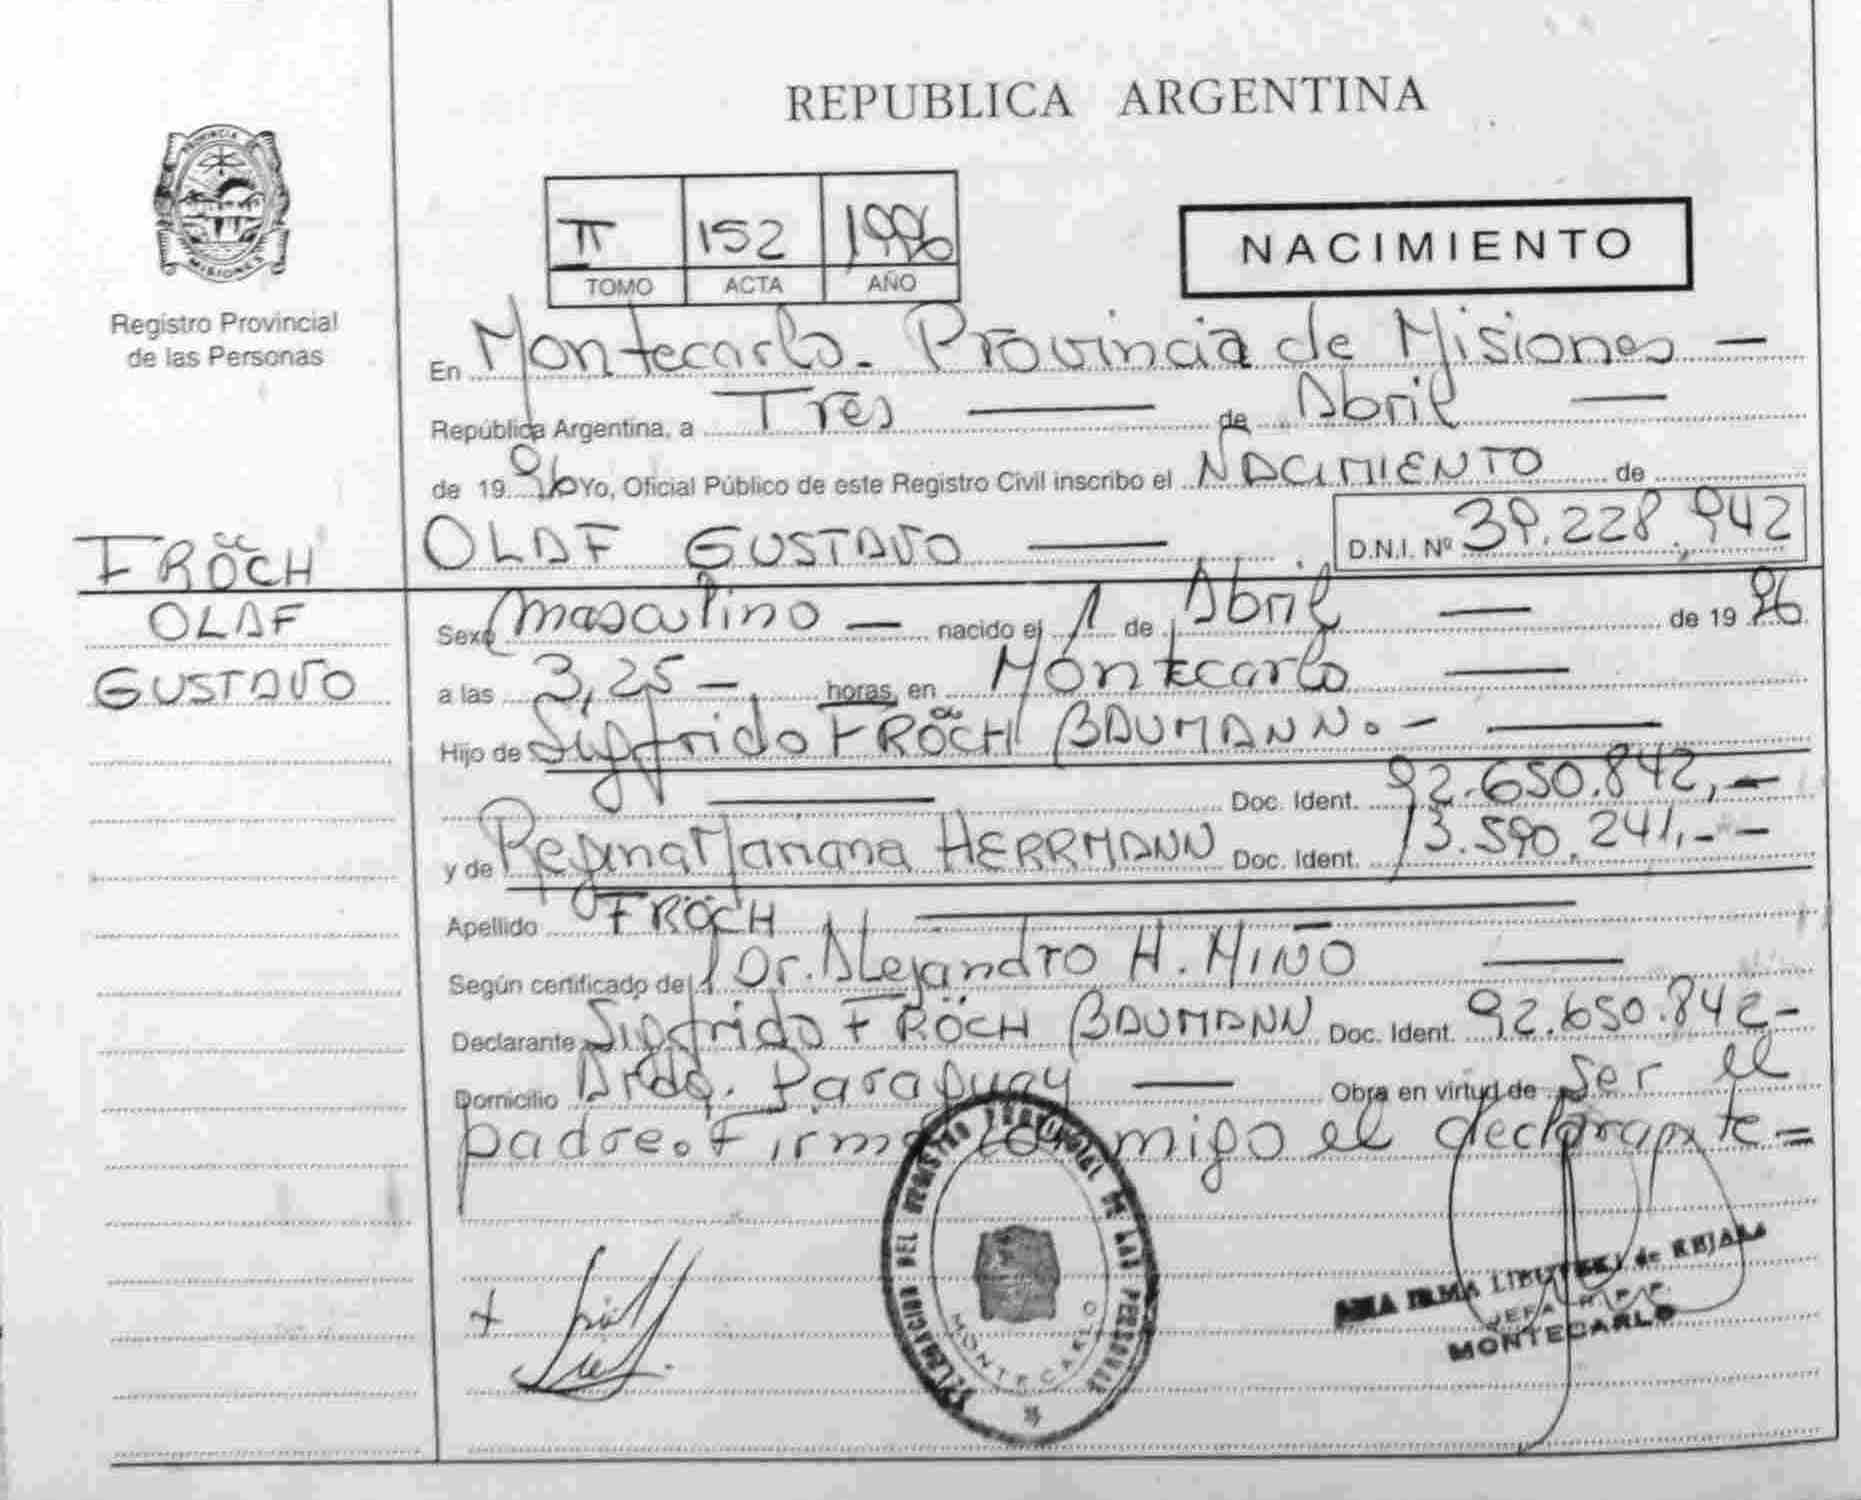 REPUBLICA ARGENTINA
PROVINCIA
MISIONES
Registro Provincial
de las Personas
II 152 1996
TOMO ACTA AÑO
NACIMIENTO
En Montecarlo. Provincia de Misiones —
República Argentina, a Tres — de Abril —
de 1996 Yo, Oficial Público de este Registro Civil inscribo el NACIMIENTO de
OLAF GUSTAVO — D.N.I. Nº 39.228.942
FRÖCH
OLAF
GUSTAVO
Sexo Masculino — nacido el 1 de Abril — de 1996
a las 3,25 — horas, en Montecarlo —
Hijo de Sigfrido FRÖCH BAUMANN. - —
— Doc. Ident. 92.650.842,-
y de Regina Mariana HERRMANN Doc. Ident. 13.590.241,--
Apellido FRÖCH —
Según certificado del Dr. Alejandro H. MIÑO —
Declarante Sigfrido FRÖCH BAUMANN Doc. Ident. 92.650.842-
Domicilio Avda. Paraguay — Obra en virtud de ser el
padre. Firma conmigo el declarante =
DELEGACION DEL REGISTRO PROVINCIAL DE LAS PERSONAS
MONTECARLO
ANA IRMA de
JEFA R.P.P.
MONTECARLO